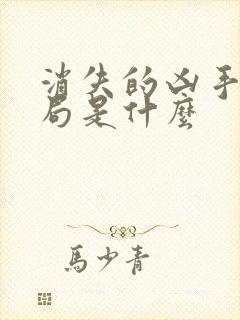 消失的凶手
局是什麼
馬少青